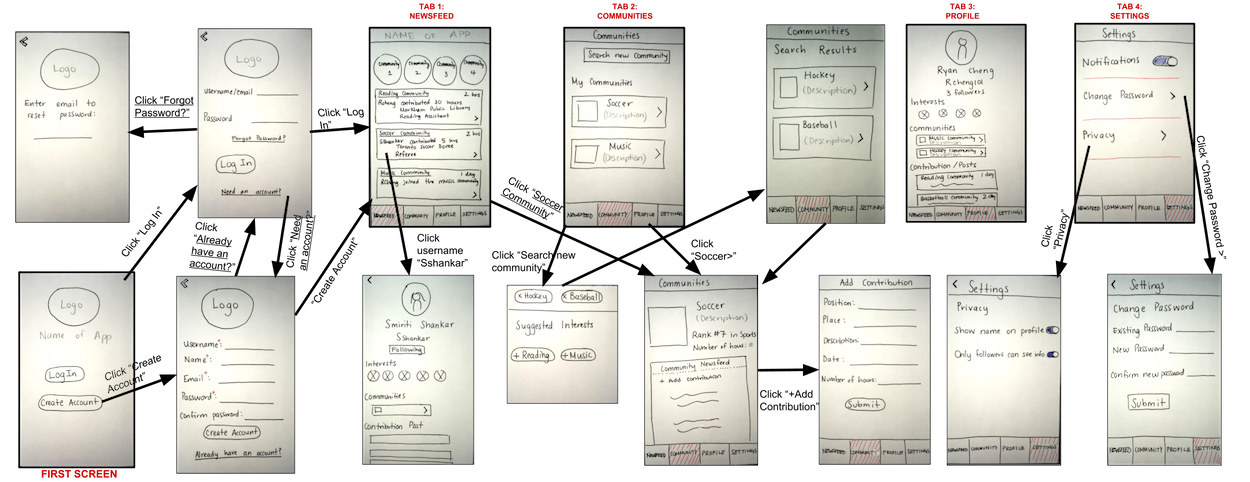 TAB 1:
NEWSFEED
TAB 2:
COMMUNITIES
TAB 3:
PROFILE
TAB 4:
SETTINGS
Logo
Enter email to
reset password:
Click “Forgot
Password?”
Logo
Username/email
Password
Forgot Password?
Log In
Need an account?
Click “Log
In”
NAME OF APP
Community
1
Community
2
Community
3
Community
4
Reading Community 2 hrs
Rcheng contributed 30 hours
Markham Public Library
Reading Assistant >
Soccer Community 2 hrs
SShankar contributed 5 hrs
Toronto Soccer Dome
Referee >
Music Community 1 day
RCheng joined the music community
>
NEWSFEED COMMUNITY PROFILE SETTINGS
Communities
Search new Community
My Communities
Soccer
(Description) >
Music
(Description) >
NEWSFEED COMMUNITY PROFILE SETTINGS
Communities
Search Results
Hockey
(Description) >
Baseball
(Description) >
NEWSFEED COMMUNITY PROFILE SETTINGS
Ryan Cheng
Rcheng101
3 followers
Interests
Communities
Music Community >
Description
Hockey Community >
Description
Contribution / Posts
Reading Community 1 day
Basketball Community 2 day
NEWSFEED COMMUNITY PROFILE SETTINGS
Settings
Notifications
Change Password >
Privacy >
NEWSFEED COMMUNITY PROFILE SETTINGS
Click “Log In”
Click
“Already
have an
account?”
Click “Need
an account?”
“Create Account”
Click
username
“Sshankar”
Click “Soccer
Community”
Click “Search new
community”
Click
“Soccer>”
Click
“Privacy”
Click “Change Password >”
Logo
Name of App
Log In
Create Account
FIRST SCREEN
Click “Create
Account”
Logo
Username*:
Name*:
Email*:
Password*:
Confirm password:
Create Account
Already have an account?
<
Smriti Shankar
Sshankar
Following
Interests
Communities
>
Contribution Post
x Hockey x Baseball
Suggested Interests
+ Reading + Music
Communities
Soccer
(Description)
Rank #7 in Sports
Number of hours: #
Community Newsfeed
+ Add contribution
NEWSFEED COMMUNITY PROFILE SETTINGS
Click “+Add
Contribution”
Add Contribution
Position:
Place:
Description:
Date:
Number of hours:
Submit
NEWSFEED COMMUNITY PROFILE SETTINGS
< Settings
Privacy
Show name on profile
Only followers can see info
NEWSFEED COMMUNITY PROFILE SETTINGS
< Settings
Change Password
Existing Password
New Password
Confirm new password
Submit
NEWSFEED COMMUNITY PROFILE SETTINGS